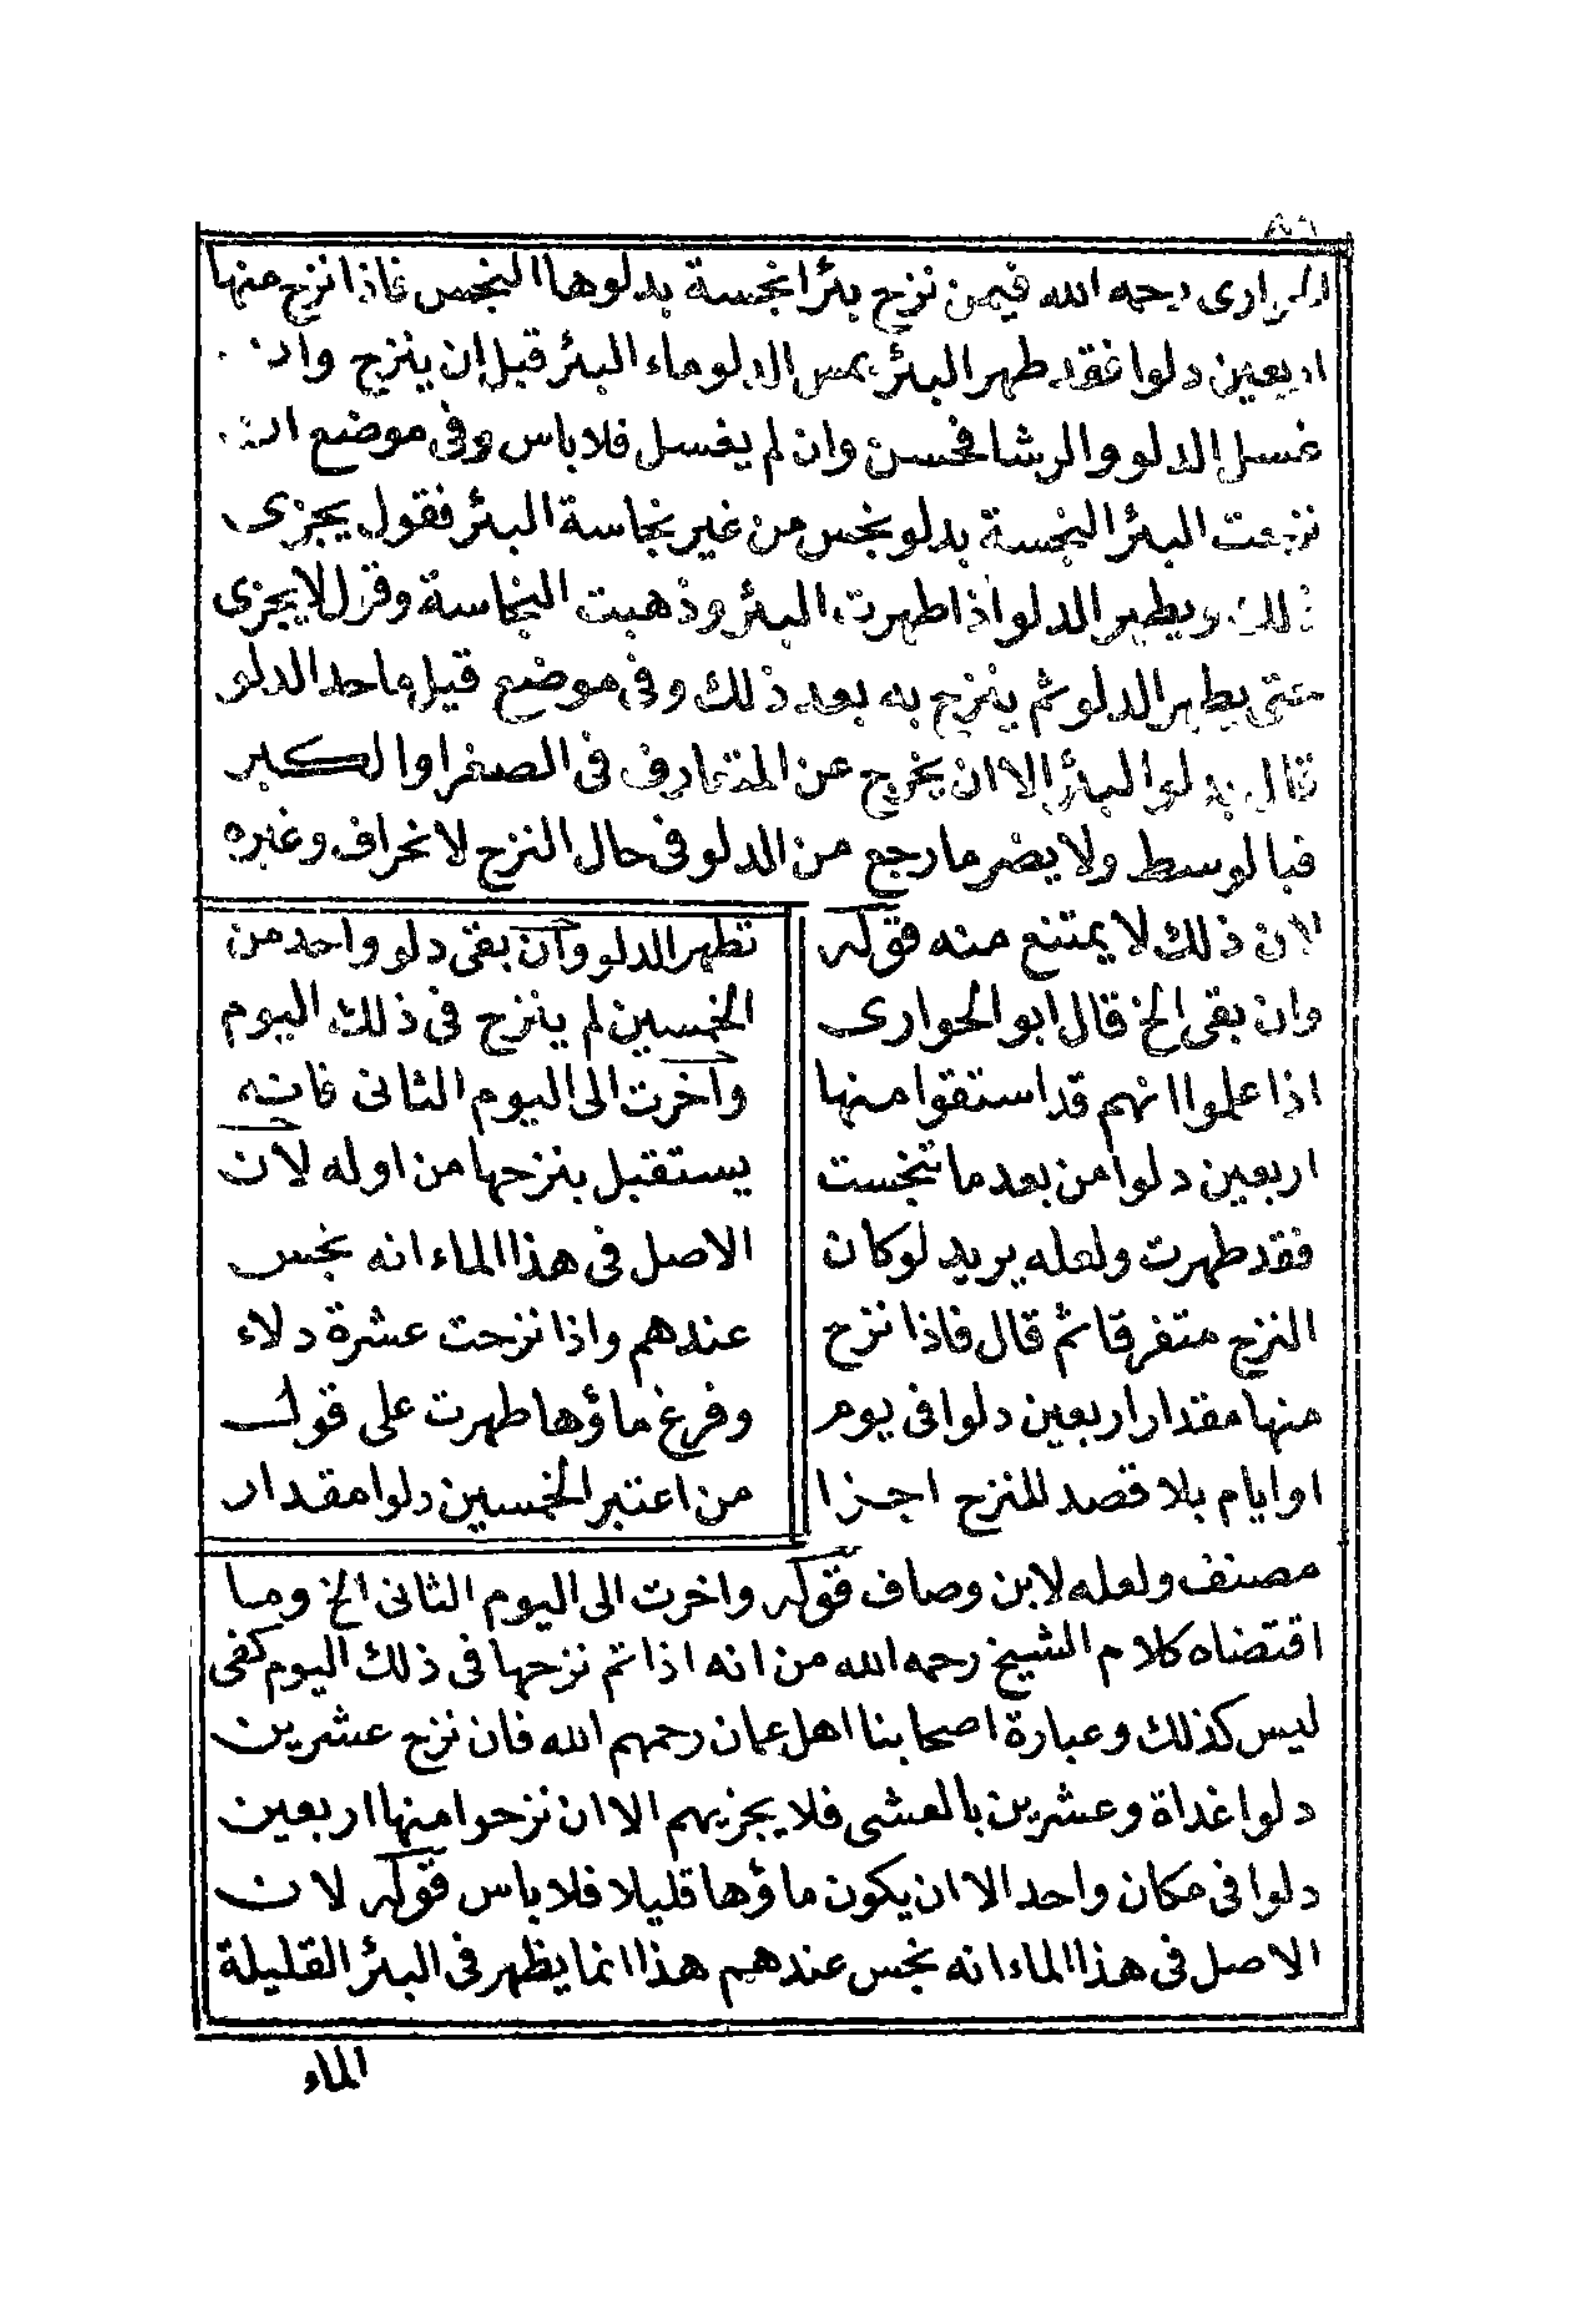 الحوارى رحمه الله فيمن نزح بئرا نجسة بدلوها النجس فاذا نزح منها
اربعين دلوا فقد طهر البئر بمس الدلو ماء البئر قبل ان ينزح وان
غسل الدلو والرشا فحسن وان لم يغسل فلا باس وفى موضع ان
نزحت البئر النجسة بدلو نجس من غير نجاسة البئر فقول يجزى
ذلك ويطهر الدلو اذا طهرت البئر وذهبت النجاسة وقول لا يجزى
حتى يطهر الدلو ثم ينزح به بعد ذلك وفى موضع قيل ما حد الدلو
قال بدلو البئر الا ان يخرج عن المتعارف فى الصغر او الكبر
فبالوسط ولا يضر ما رجع من الدلو فى حال النزح لانحراف وغيره
لان ذلك لا يمتنع منه قوله
وان بقى الخ قال ابو الحوارى
اذا علموا انهم قد استقوا منها
اربعين دلوا من بعد ما تنجست
فقد طهرت ولعله يريد لو كان
النزح متفرقا ثم قال فاذا نزح
منها مقدار اربعين دلوا فى يوم
او ايام بلا قصد للنزح اجزا
تطهر الدلو وان بقى دلو واحد من
الخمسين لم ينزح فى ذلك اليوم
واخرت الى اليوم الثانى فانه
يستقبل بنزحها من اوله لان
الاصل فى هذا الماء انه نجس
عندهم واذا نزحت عشرة دلاء
وفرغ ماؤها طهرت على قول
من اعتبر الخمسين دلوا مقدار
مصنف ولعله لابن وصاف قوله واخرت الى اليوم الثانى الخ وما
اقتضاه كلام الشيخ رحمه الله من انه اذا تم نزحها فى ذلك اليوم كفى
ليس كذلك وعبارة اصحابنا اهل عمان رحمهم الله فان نزح عشرين
دلوا غداة وعشرين بالعشى فلا يجزيهم الا ان نزحوا منها اربعين
دلوا فى مكان واحد الا ان يكون ماؤها قليلا فلا باس قوله لان
الاصل فى هذا الماء انه نجس عندهم هذا انما يظهر فى البئر القليلة
الماء